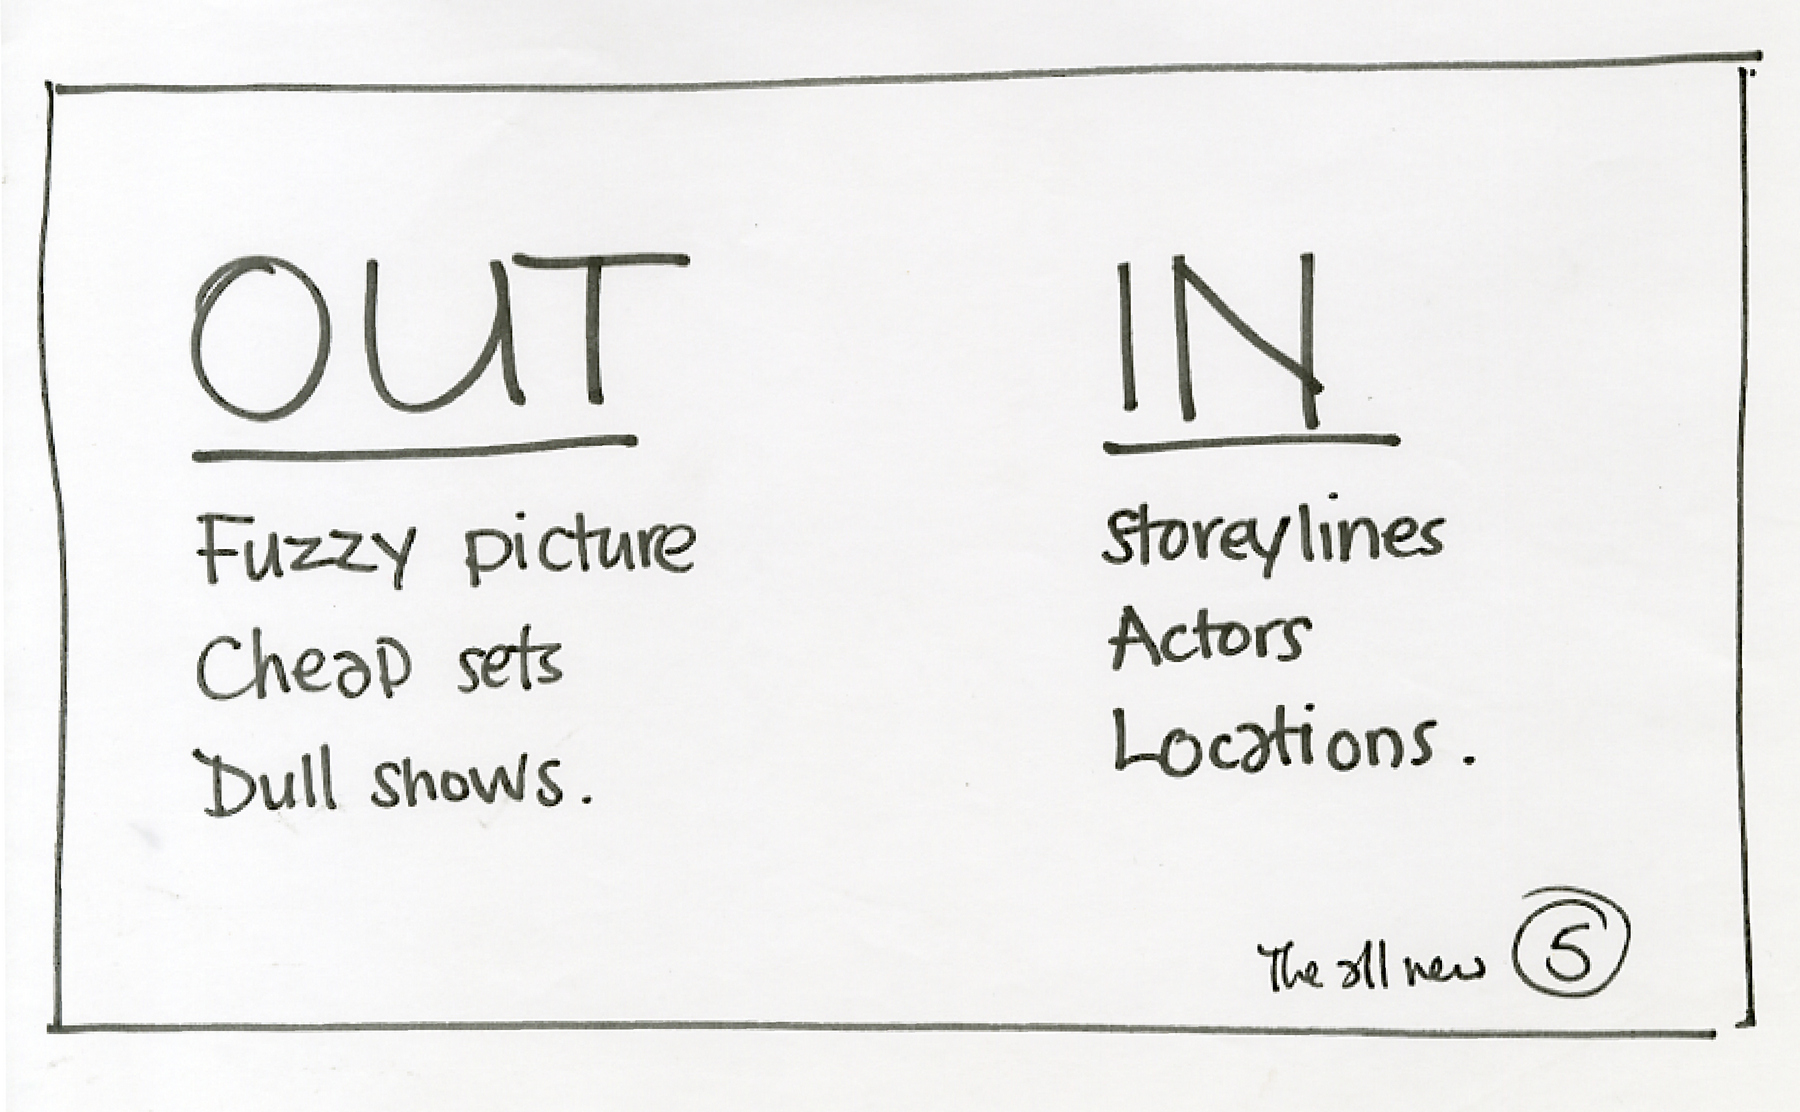 OUT
Fuzzy picture
Cheap sets
Dull shows.
IN
Storeylines
Actors
Locations.
The all new 5